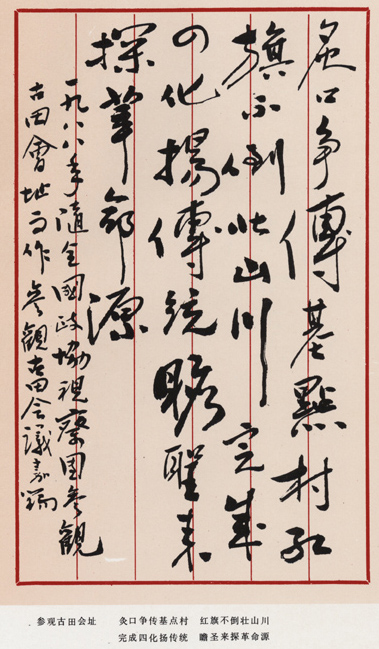 炙口争傳基點村红
旗不倒壮山川完成
四化揚傳統瞻聖来
探革命源
一九八八年随全國政協視察團参觀
古田會址而作 参觀古田会議
参观古田会址 灸口争传基点村 红旗不倒壮山川
完成四化扬传统 瞻圣来探革命源